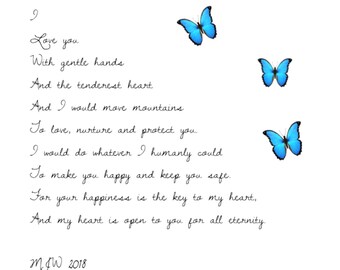 I
Love you
With gentle hands
And the tenderest heart
And I would move mountains
To love, nurture and protect you.
I would do whatever I humanly could
To make you happy and keep you safe.
For your happiness is the key to my heart,
And my heart is open to you for all eternity.
MJW 2018